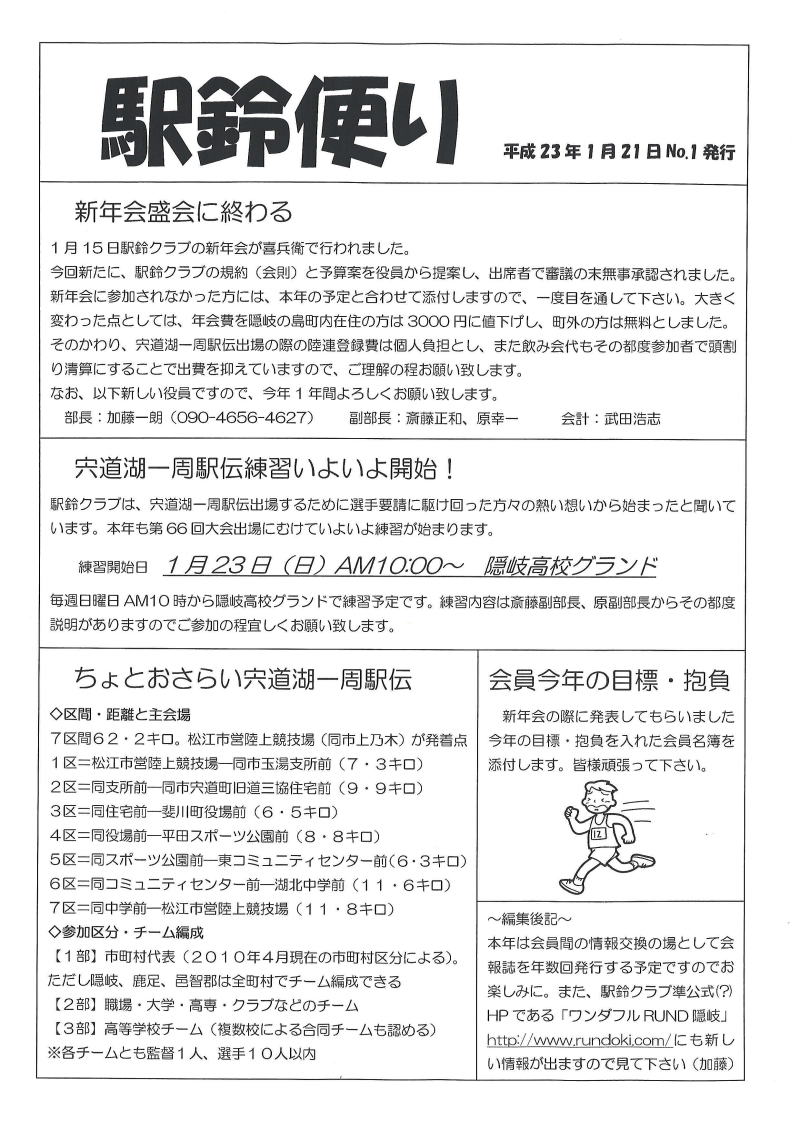 駅鈴便り
平成23年1月21日No.1発行
新年会盛会に終わる
1月15日駅鈴クラブの新年会が喜兵衛で行われました。
今回新たに、駅鈴クラブの規約（会則）と予算案を役員から提案し、出席者で審議の末無事承認されました。
新年会に参加されなかった方には、本年の予定と合わせて添付しますので、一度目を通して下さい。大きく
変わった点としては、年会費を隠岐の島町内在住の方は3000円に値下げし、町外の方は無料としました。
そのかわり、宍道湖一周駅伝出場の際の陸連登録費は個人負担とし、また飲み会代もその都度参加者で頭割
り清算にすることで出費を抑えていますので、ご理解の程お願い致します。
なお、以下新しい役員ですので、今年1年間よろしくお願い致します。
部長：加藤一朗（090-4656-4627）　副部長：斎藤正和、原幸一　会計：武田浩志
宍道湖一周駅伝練習いよいよ開始！
駅鈴クラブは、宍道湖一周駅伝出場するために選手要請に駆け回った方々の熱い想いから始まったと聞いて
います。本年も第66回大会出場にむけていよいよ練習が始まります。
練習開始日　1月23日（日）AM10:00～　隠岐高校グランド
毎週日曜日AM10時から隠岐高校グランドで練習予定です。練習内容は斎藤副部長、原副部長からその都度
説明がありますのでご参加の程宜しくお願い致します。
ちょとおさらい宍道湖一周駅伝
◇区間・距離と主会場
7区間62・2キロ。松江市営陸上競技場（同市上乃木）が発着点
1区＝松江市営陸上競技場―同市玉湯支所前（7・3キロ）
2区＝同支所前―同市宍道町旧道三協住宅前（9・9キロ）
3区＝同住宅前―斐川町役場前（6・5キロ）
4区＝同役場前―平田スポーツ公園前（8・8キロ）
5区＝同スポーツ公園前―東コミュニティセンター前（6・3キロ）
6区＝同コミュニティセンター前―湖北中学前（11・6キロ）
7区＝同中学前―松江市営陸上競技場（11・8キロ）
◇参加区分・チーム編成
【1部】市町村代表（2010年4月現在の市町村区分による）。
ただし隠岐、鹿足、邑智郡は全町村でチーム編成できる
【2部】職場・大学・高専・クラブなどのチーム
【3部】高等学校チーム（複数校による合同チームも認める）
※各チームとも監督1人、選手10人以内
会員今年の目標・抱負
新年会の際に発表してもらいました
今年の目標・抱負を入れた会員名簿を
添付します。皆様頑張って下さい。
12
～編集後記～
本年は会員間の情報交換の場として会
報誌を年数回発行する予定ですのでお
楽しみに。また、駅鈴クラブ準公式(?)
HPである「ワンダフルRUND隠岐」
http://www.rundoki.com/にも新し
い情報が出ますので見て下さい（加藤）